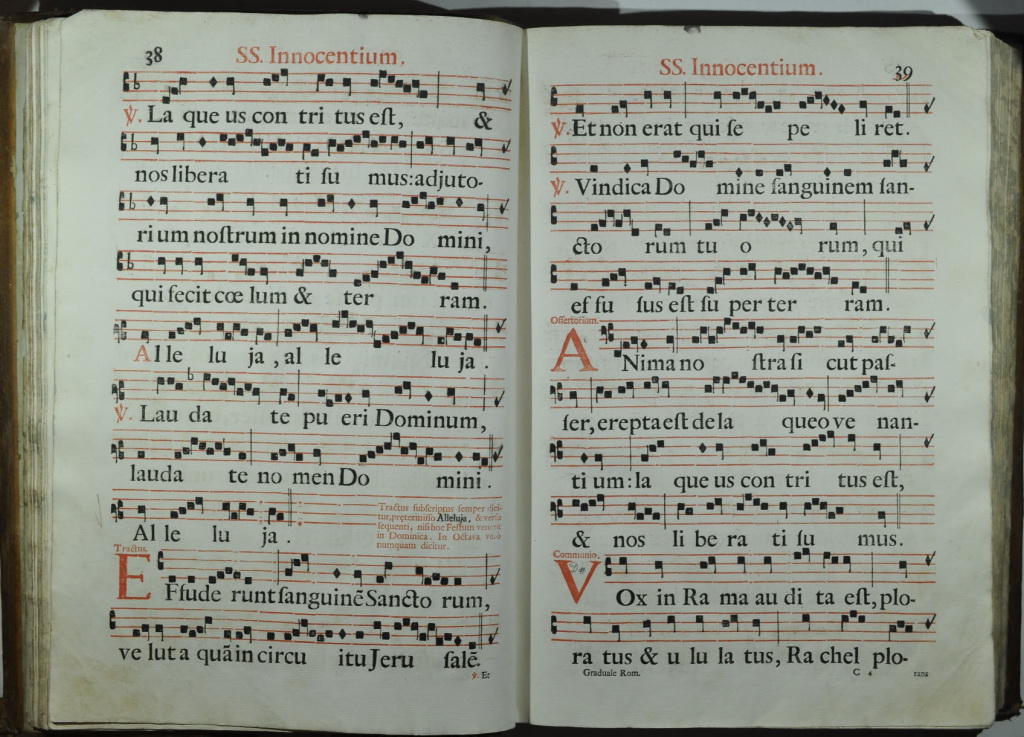 38
SS. Innocentium.
℣. La que us con tri tus eſt, &
nos libera ti ſu mus: adjuto-
ri um noſtrum in nomine Do mini,
qui fecit cœ lum & ter ram.
Al le lu ja, al le lu ja.
℣. Lau da te pu eri Dominum,
lauda te no men Do mini.
Al le lu ja.
Tractus ſubſcriptus ſemper dici-
tur, prætermiſſo Alleluja, & verſu
ſequenti, niſi hoc Feſtum venerit
in Dominica. In Octava verò
numquam dicitur.
Tractus.
EFfude runt ſanguinẽ Sancto rum,
ve lut a quã in circu itu Jeru ſalẽ.
℣. Et
SS. Innocentium.
39
℣. Et non erat qui ſe pe li ret.
℣. Vindica Do mine ſanguinem ſan-
cto rum tu o rum, qui
ef fu ſus eſt ſu per ter ram.
Offertorium.
ANima no ſtra ſi cut paſ-
ſer, erepta eſt de la queo ve nan-
ti um: la que us con tri tus eſt,
& nos li be ra ti ſu mus.
Communio.
VOx in Ra ma au di ta eſt, plo-
ra tus & u lu la tus, Ra chel plo-
Graduale Rom. C 4 rans